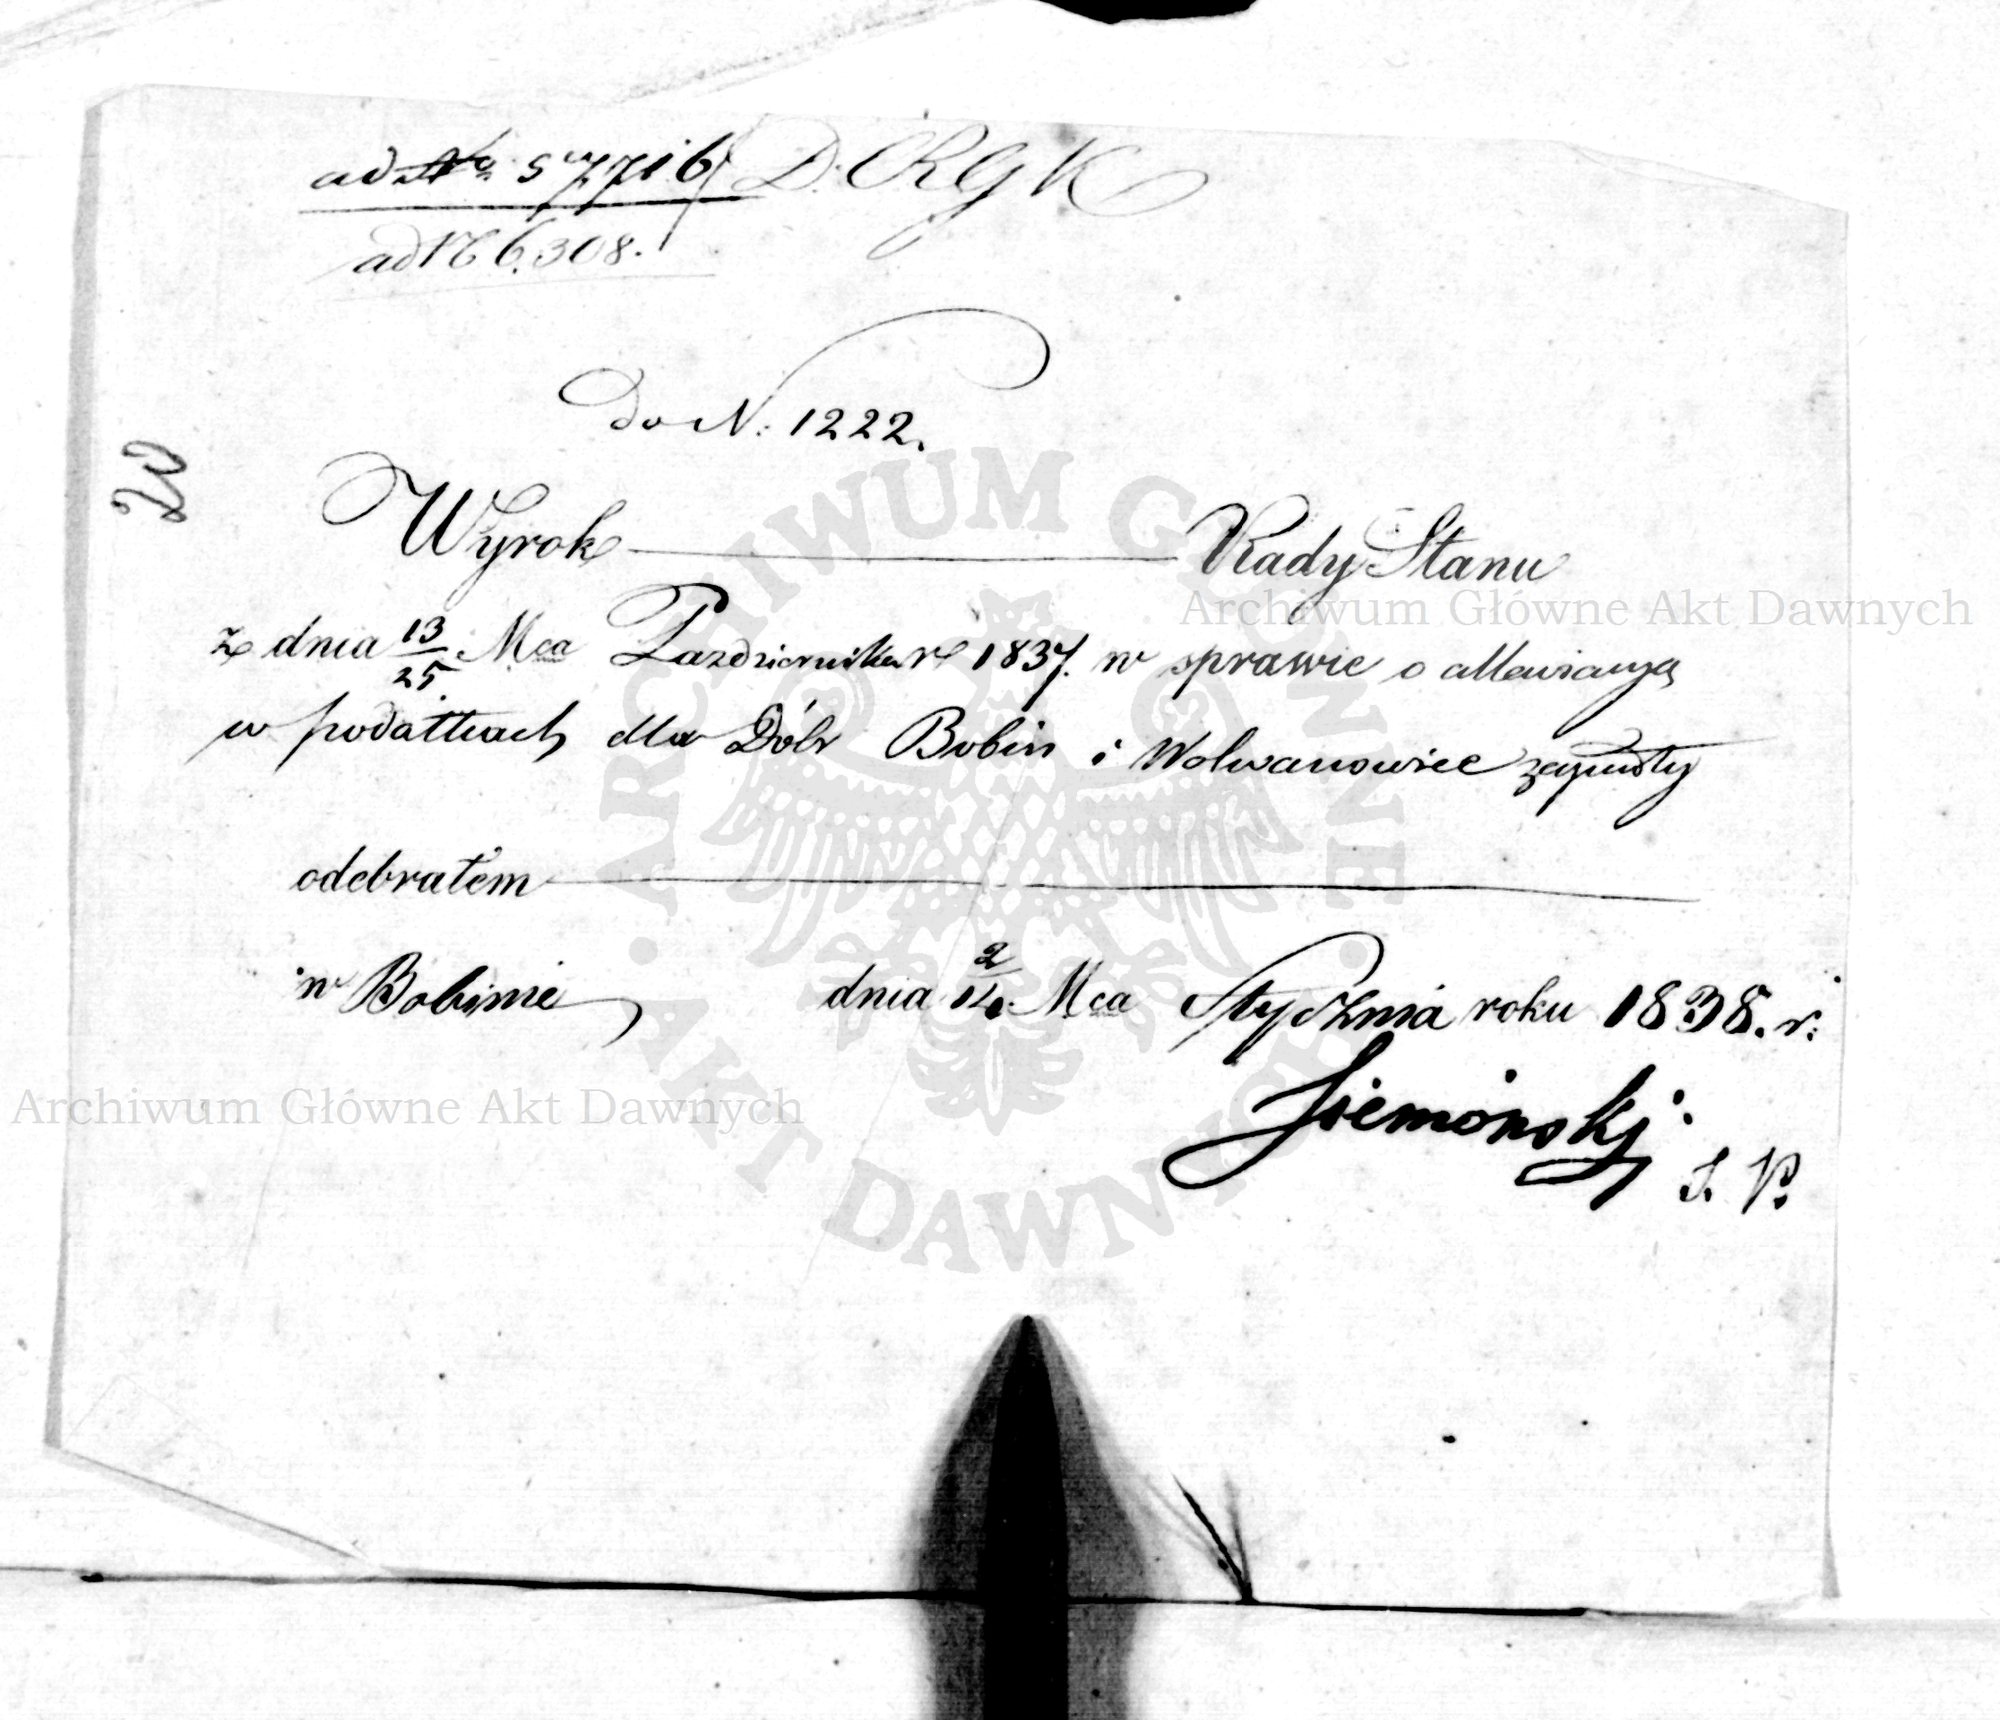 ad No 57716 D. KRGK
ad No 6,308.
Do N: 1222.
Wyrok Rady Stanu
z dnia 13/25. Mca Pazdziernika r 1837. w sprawie o allewiacyą
w podatkach dla Dóbr Bobin i Wolwanowice zapadły
odebrałem
w Bobinie dnia 2/14. Mca Stycznia roku 1838. r:
Siemónski
Archiwum Główne Akt Dawnych
Archiwum Główne Akt Dawnych
ARCHIWUM GŁÓWNE AKT DAWNYCH